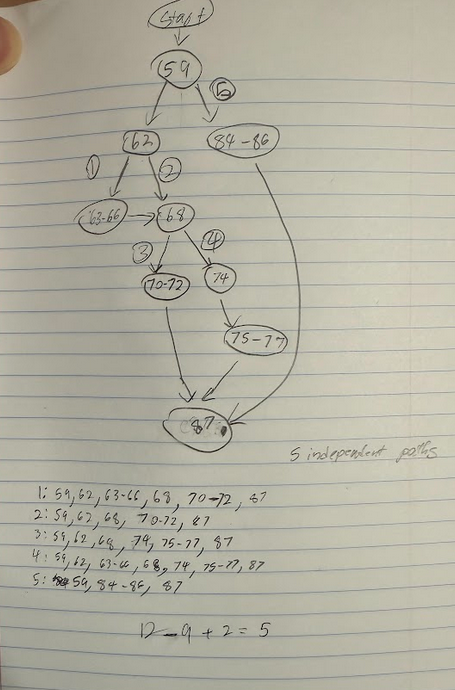 Start
59
5
62
84-86
1
2
63-66
68
3
4
70-72
74
75-77
87
5 independent paths
1: 59, 62, 63-66, 68, 70-72, 87
2: 59, 62, 68, 70-72, 87
3: 59, 62, 68, 74, 75-77, 87
4: 59, 62, 63-66, 68, 74, 75-77, 87
5: 59, 84-86, 87
12-9+2=5